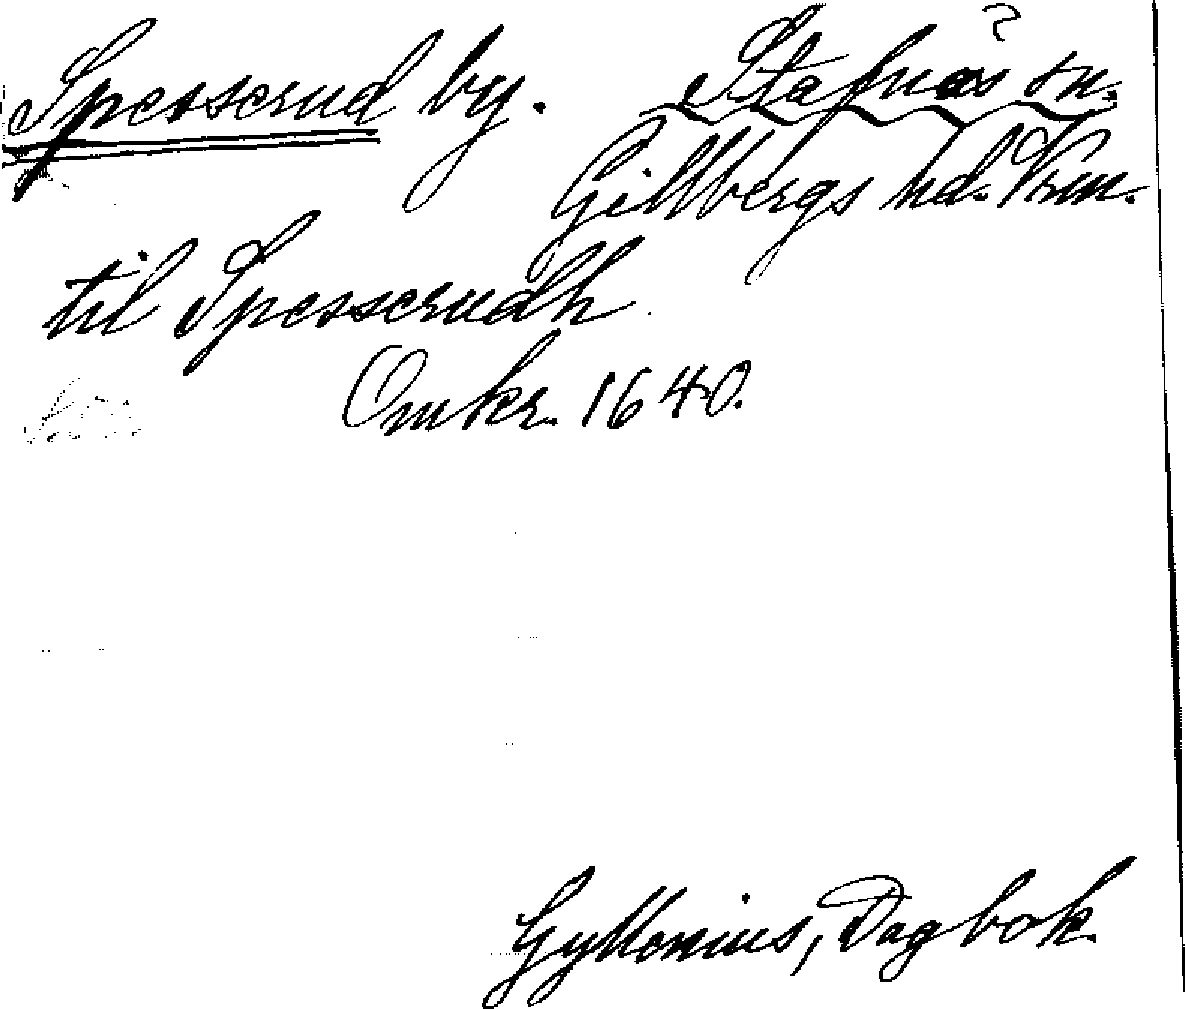 Spesserud by. Stafnäs sn.
Gillbergs hd. Vrm.
til Spesserudh
Omkr. 1640.
Gyllenius, Dagbok.